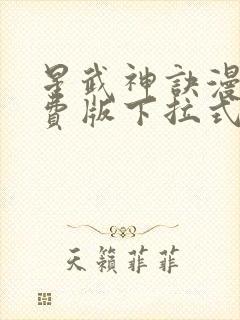 星武神訣漫
費版下拉式
天籟菲菲